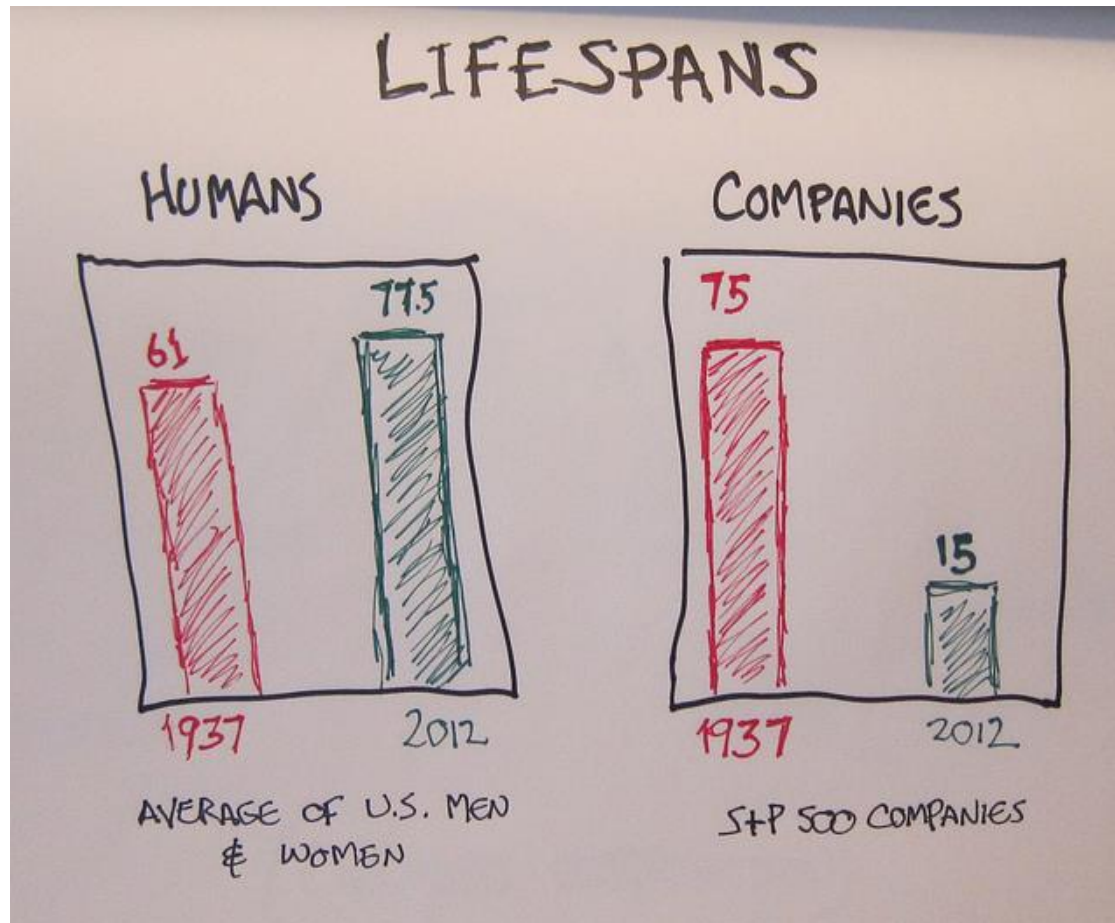 LIFESPANS
HUMANS
61
77.5
1937
2012
AVERAGE OF U.S. MEN
& WOMEN
COMPANIES
75
15
1937
2012
S+P 500 COMPANIES